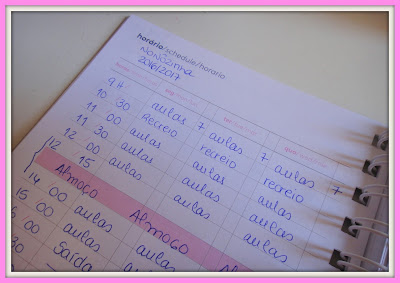 horário/schedule/horario
NONÔZinha
2016/2017
9 H aulas 7 aulas 7 aulas 7
10 30 Recreio recreio recreio
11 00 aulas aulas aulas
11 30 aulas aulas aulas
12 00 aulas aulas aulas
12 15 Almoço Almoço
14 00 aulas aulas
15 00 aulas aulas
00 Saída
30